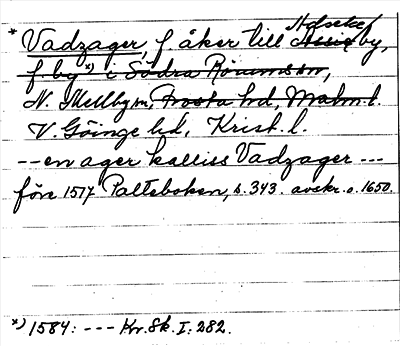 * Vadzager, f. åker till Adseke
by,
f. by *) i Södra Rörumssn,
N. Mellbysn, Frosta hd, Malm. l.
V. Göinge hd, Krist. l.
-- en ager kalliss Vadzager ---
före 1517 Palteboken, s. 343. avskr. o. 1650.
*) 1584: --- Kr. Sk. I: 282.